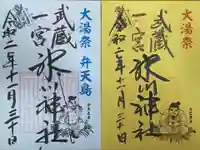 大湯祭 弁天島
武蔵
一宮
氷川神社
令和二年十一月三十日
大湯祭
武蔵
一宮
氷川神社
令和二年十一月三十日